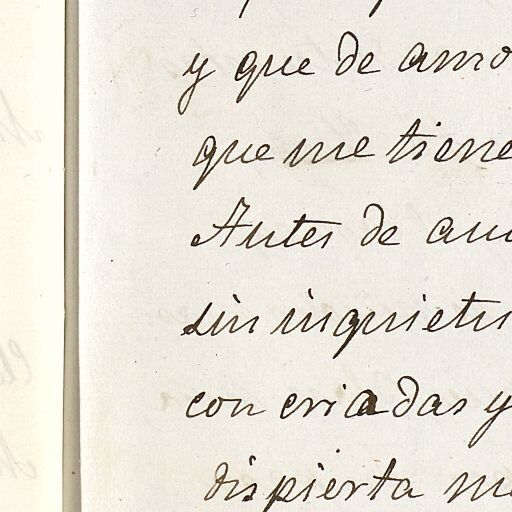 y que de amo
que me tiene
Antes de am
sin inquietu
con criadas y
dispierta m